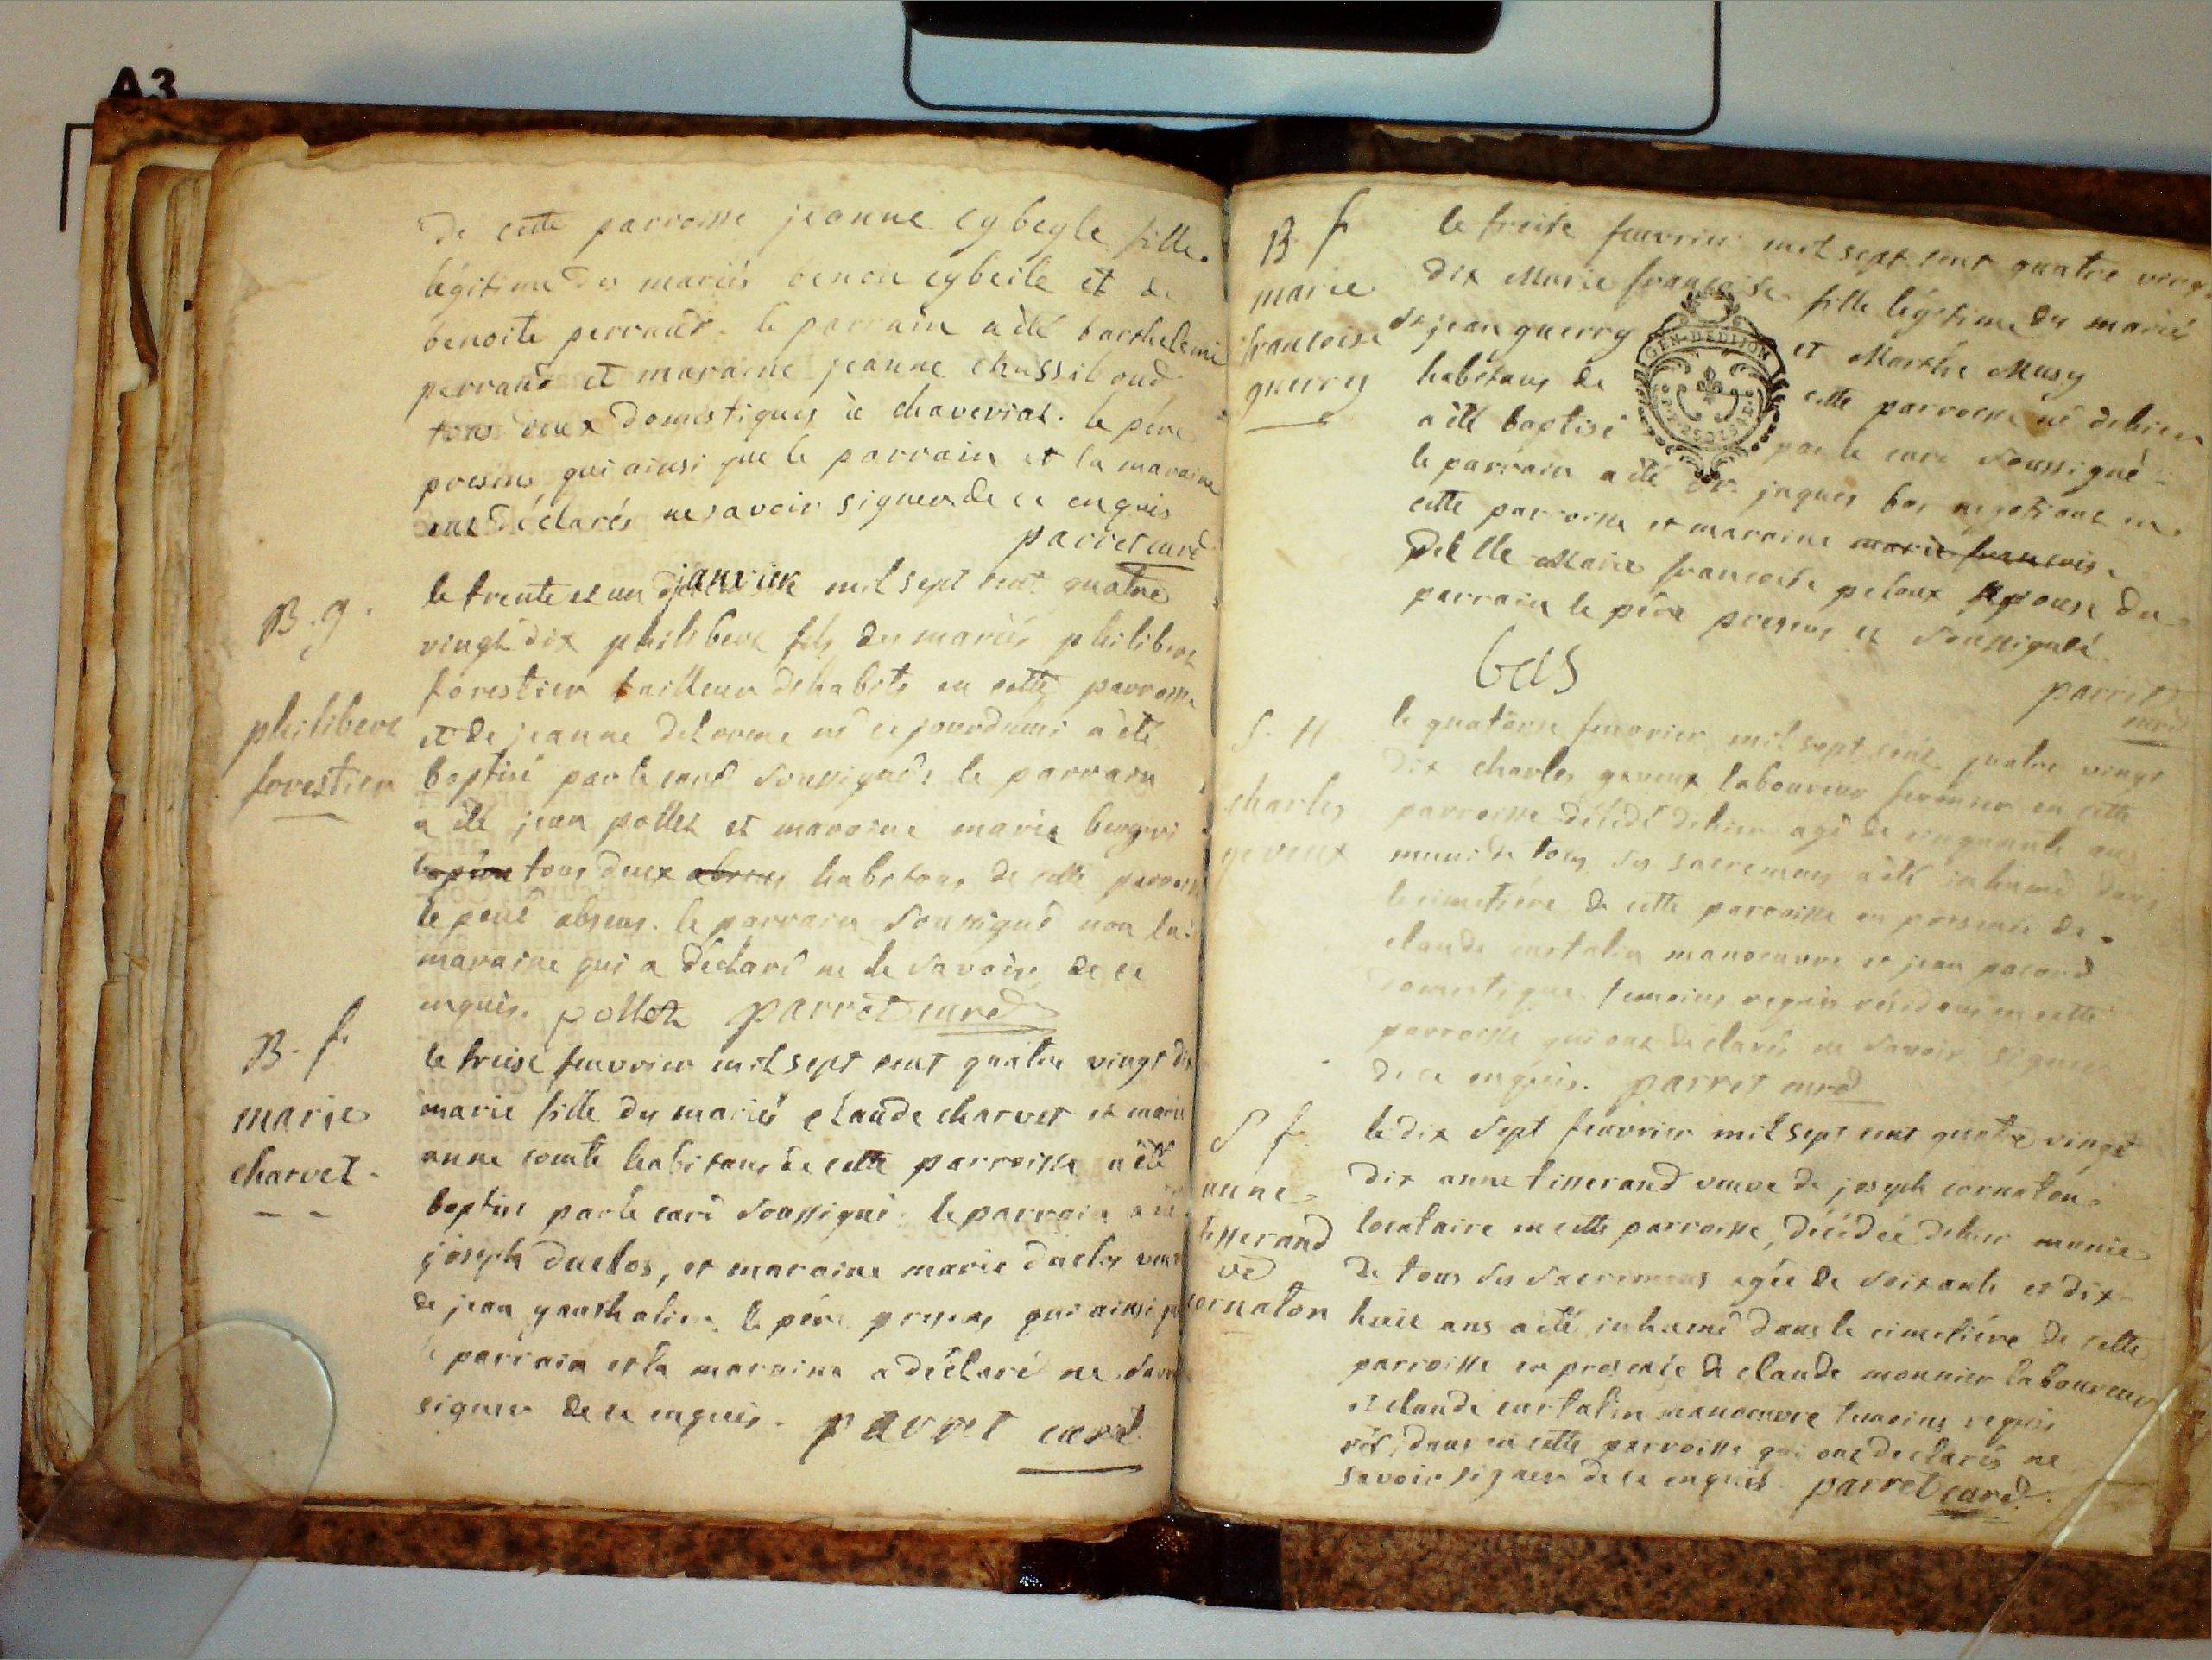 A3
de cette parroisse jeanne cybegle fille
légitime des mariés benoit cybeile et de
benoite perraud. le parrain a été barthelemi
perraud et maraine jeanne chussiboud
tous deux domestiques à chaveriat. le père
presens qui ainsi que le parrain et la maraine
ont déclarés ne savoir signer de ce enquis
parret curé
B. g.
philibert
forestier
le trente et un janvier mil sept cent quatre
vingt dix philibert fils des mariés philibert
forestier tailleur dhabits en cette parroisse
et de jeanne delorme né ce jourdhui a été
baptisé par le curé soussigné: le parrain
a été jean pollet et maraine marie
le père tous deux absens habitans de cette parroisse
le père absens. le parrain soussigné non la
maraine qui a déclaré ne le savoir, de ce
enquis. pollet parret curé
B. f.
marie
charvet
le treise feuvrier mil sept cent quatre vingt dix
marie fille des mariés claude charvet et marie
anne comte habitans de cette parroisse a été
baptisé par le curé soussigné. le parrain a été
joseph duclos, et maraine marie duclos veuve
de jean gauthalier. le père presens qui ainsi que
le parrain et la maraine a déclaré ne savoir
signer de ce enquis. parret curé
B. f
marie
francoise
guerry
le treise feuvrier mil sept cent quatre vingt
dix Marie francoise fille légitime des mariés
de jean guerry et Marthe Musy
habitans de cette parroisse né dehier
a été baptisé par le curé soussigné
GEN. DE DIJON
le parrain a été sr. jaques bas negotiant en
cette parroisse et maraine marie francoise
Delle Marie francoise peloux épouse du
parrain le père presens et soussigné.
bas
parret
curé
S. H
charles
geveux
le quatorse feuvrier mil sept cent quatre vingt
dix charles geveux laboureur fermier en cette
parroisse décédé dehier agé de cinquante ans
muni de tous ses sacremens a été inhumé dans
le cimetière de cette parroisse en presence de
claude curtalin manoeuvre et jean pacard
domestique temoins requis résidans en cette
parroisse qui ont déclarés ne savoir signer
de ce enquis. parret curé
S f.
anne
tisserand
ve
cornaton
le dix sept feuvrier mil sept cent quatre vingt
dix anne tisserand veuve de joseph cornaton
locataire en cette parroisse, décédée dehier munie
de tous ses sacremens agée de soixante et dix
huit ans a été inhumé dans le cimetière de cette
parroisse en presence de claude monnier laboureur
et claude curtalin manoeuvre temoins requis
résidans en cette parroisse qui ont declarés ne
savoir signer de ce enquis parret curé.